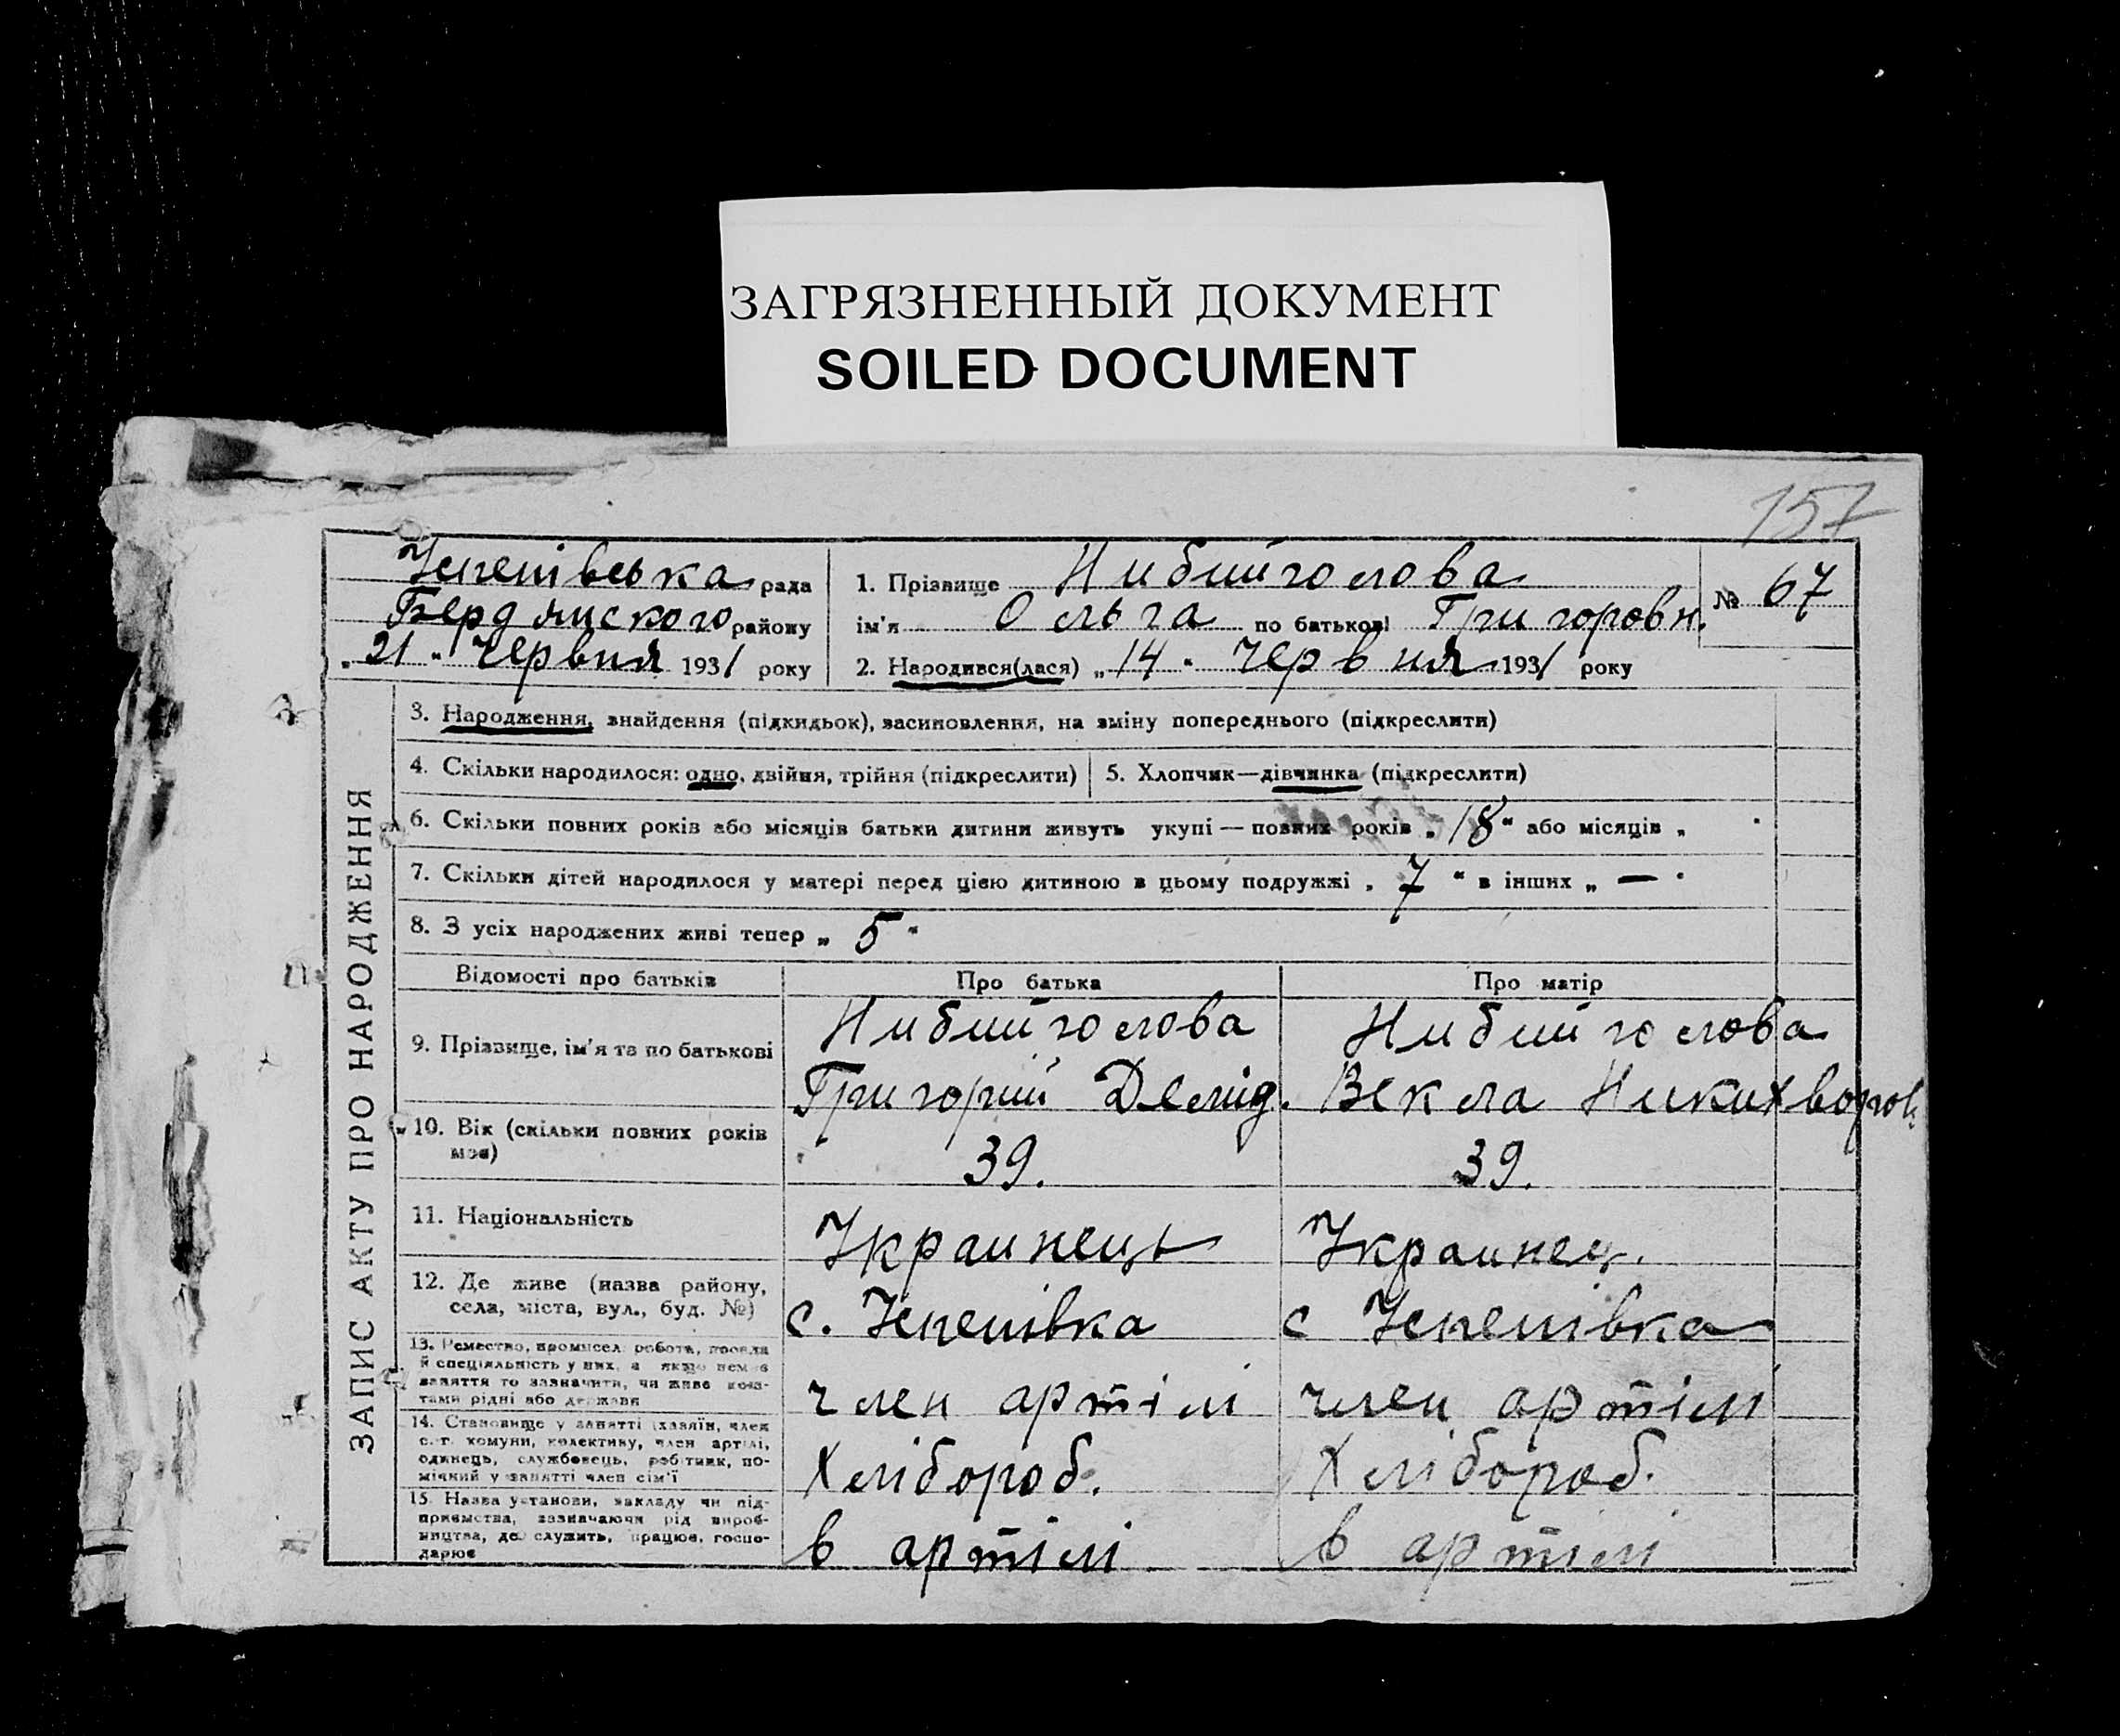 ЗАГРЯЗНЕННЫЙ ДОКУМЕНТ
SOILED DOCUMENT
157
Успенівська рада
Бердянского району
„21“ Червня 1931 року
1. Прізвище Нибийголова
ім'я Ольга по батькові Григоровн.
№ 67
2. Народився(лася) „14“ Червня 1931 року
ЗАПИС АКТУ ПРО НАРОДЖЕННЯ
3. Народження, знайдення (підкидьок), засиновлення, на зміну попереднього (підкреслити)
4. Скільки народилося: одно, двійня, трійня (підкреслити)
5. Хлопчик—дівчинка (підкреслити)
6. Скільки повних років або місяців батьки дитини живуть укупі — повних років „18“ або місяців „
7. Скільки дітей народилося у матері перед цією дитиною в цьому подружжі „7“ в інших „—“
8. З усіх народжених живі тепер „5“
Відомості про батьків Про батька Про матір
9. Прізвище, ім'я та по батькові
Нибийголова
Григорий Демид.
Нибийголова
Векла Никихворов
10. Вік (скільки повних років
має)
39.
39.
11. Національність
Украинець
Украинец.
12. Де живе (назва району,
села, міста, вул., буд. №)
с. Успенівка
с Успенівка
13. Ремество, промисел, робота, посада
й спеціяльність у них, а якщо немає
заняття то зазначити, чи живе кош-
тами рідні або держави
член артіли
член артіли
14. Становище у занятті (хазяїн, член
с.-г. комуни, колективу, член артілі,
одинець, службовець, робітник, по-
мічний у занятті член сім'ї
Хлібороб.
Хлібороб.
15. Назва установи, закладу чи під-
приємства, зазначаючи рід вироб-
ництва, де служить, працює, госпо-
дарює
в артілі
в артілі